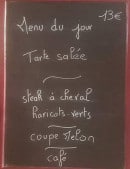 Menu du jour 13€
Tarte salée
steak à cheval
haricots-verts
coupe Melon
café